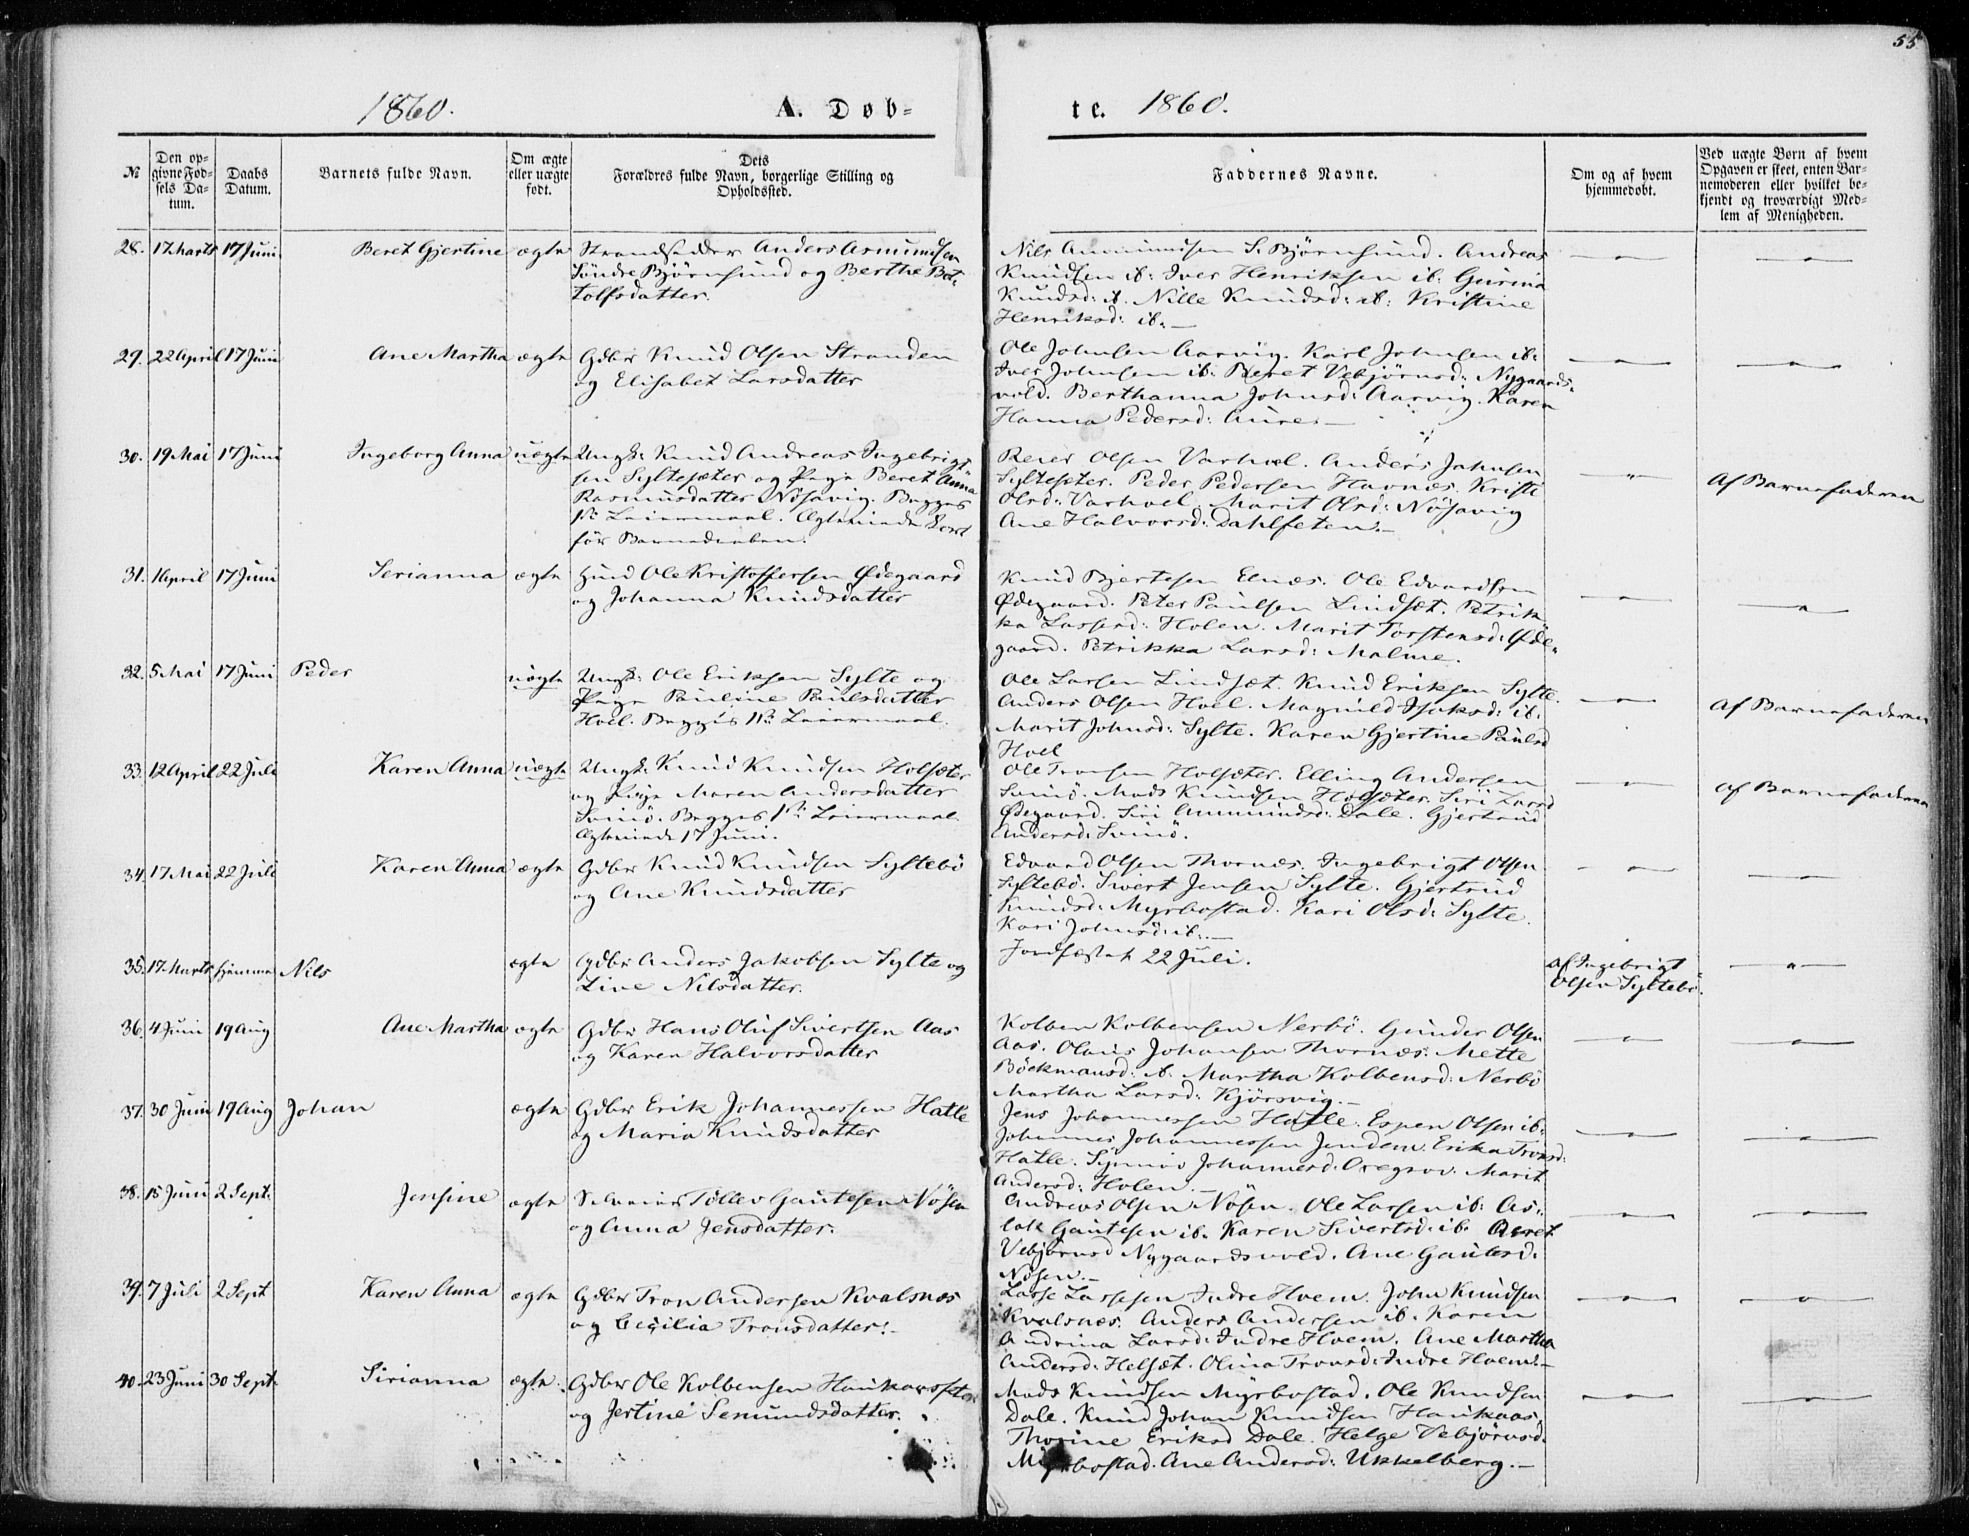 55
1860.
A. Døb-
te. 1860.
№
Den opgivne Fødsels Datum.
Daabs Datum.
Barnets fulde Navn.
Om ægte eller uægte født.
Dets Forældres fulde Navn, borgerlige Stilling og Opholdssted.
Faddernes Navne.
Om og af hvem hjemmedøbt.
Ved uægte Børn af hvem Opgaven er skeet, enten Barnemoderen eller hvilket bekjendt og troværdigt Medlem af Menigheden.
28. 17 Marts 17 Juni Beret Gjertine ægte Strandsidder Anders Asmundsen
Söndre Björnsund og Berthe Bot-
tolfsdatter.
Nils Ammundsen S. Björnsund. Andreas
Knudsen ib: Iver Henriksen ib: Gurina
Knudsd: ib. Nille Knudsd: ib: Kristine
Henriksd: ib.—
29. 22 April 17 Juni Ane Martha ægte Gdbr Knud Olsen Stranden
og Elisabet Larsdatter
Ole Johnsen Aarvig. Karl Johnsen ib:
Iver Johnsen ib: Beret Vebjörnsd: Nygaards-
vold. Berthanna Johnsd: Aarvig. Karen
Hanna Pedersd: Aure.—
30. 19 Mai 17 Juni Ingeborg Anna uægte Ungk: Knud Andreas Ingebrigt-
sen Syltesæter og Pige Beret Anna
Rasmusdatter Nösavig. Begges
1ste Leiermaal. Ægteviede
før Barnedaaben.
Reier Olsen Varhol. Anders Johnsen
Syltesæter. Peder Pedersen Havnæs. Kristi
Olsd: Varhoel. Marit Olsd: Nösavig
Ane Halvorsd: Dahlseten.—
Af Barnefaderen
31. 1 April 17 Juni Serianna ægte Husmd Ole Kristoffersen Ødegaard
og Johanna Knudsdatter
Knud Bjertesen Elnæs. Ole Edvardsen
Ødegaard. Peter Paulsen Lindset. Petrik-
ka Lassesd: Holen. Marit Torstensd: Øde-
gaard. Petrikka Larsd: Malme.
32. 5 Mai 17 Juni Peder uægte Ungk: Ole Eriksen Sylte og
Pige Pauline Paulsdatter
Hoel. Begges 1ste Leiermaal.
Ole Larsen Lindset. Knud Eriksen Sylte.
Anders Olsen Hoel. Magnild Isaksd: ib.
Marit Johnsd: Sylte. Karen Gjertine Paulsd
Hoel
Af Barnefaderen
33. 12 April 22 Juli Karen Anna uægte Ungk: Knud Knudsen Holsæter
og Pige Maren Andersdatter
Svinö. Begges 1ste Leiermaal.
Ægteviede 17 Juni.
Ole Tronsen Holsæter. Elling Andersen
Svinö. Mads Knudsen Holsæter. Siri Larsd
Ødegaard. Siri Ammundsd: Dale. Gjertrud
Andersd: Svinö.
Af Barnefaderen
34. 17 Mai 22 Juli Karen Anna ægte Gdbr Knud Knudsen Syltebö
og Ane Knudsdatter
Edvard Olsen Thornæs. Ingebrigt Olsen
Syltebö. Sivert Jensen Sylte. Gjertrud
Knudsd: Myrbostad. Kari Olsd: Sylte.
Kari Johnsd: ib.—
35. 17 Marts hjemme Nils ægte Gdbr Anders Jakobsen Sylte og
Line Nilsdatter.
Jordfæstet 22 Juli.
af Ingebrigt
Olsen Syltebö.
36. 4 Juni 19 Aug Ane Martha ægte Gdbr Hans Oluf Sivertsen Aas
og Karen Halvorsdatter
Kolben Kolbensen Nerbö. Gunder Olsen
Aas. Olaus Johansen Thornæs. Mette
Böckmansd: ib. Martha Kolbensd: Nerbö
Martha Larsd: Kjörsvig.—
37. 30 Juni 19 Aug Johan ægte Gdbr Erik Johannessen Hatle
og Maria Knudsdatter
Jens Johannessen Hatle. Espen Olsen ib:
Johannes Johannessen Jendem. Erika Tronsd:
Hatle. Synnöv Johannesd: Oregrov. Marit
Andersd: Holen.—
38. 15 Juni 2 Sept. Jensine ægte Selveier Tollev Gautesen Nösen
og Anna Jensdatter.
Andreas Olsen Nösen. Ole Larsen ib: As-
lak Gautesen ib. Karen Sivertsd: ib. Beret
Vebjörnsd Nygaardsvold. Ane Gautesd:
Nösen.—
39. 7 Juli 2 Sept Karen Anna ægte Gdbr Tron Andersen Kvalsnæs
og Cecilia Tronsdatter.—
Lasse Lassesen Indre Hoem. John Knudsen
Kvalsnæs. Anders Andersen ib. Karen
Andrina Larsd: Indre Hoem. Ane Martha
Andersd: Helset. Olina Tronsd: Indre Hoem.—
40. 23 Juni 30 Sept. Sirianna ægte. Gdbr Ole Kolbensen Haukaassæter
og Jertine Semundsdatter.
Mads Knudsen Myrbostad. Ole Knudsen
Dale. Knud Johan Knudsen Haukaas.
Thorine Eriksd Dale. Helge Vebjörnsd:
Myrbostad. Ane Andersd: Ukkelberg.—